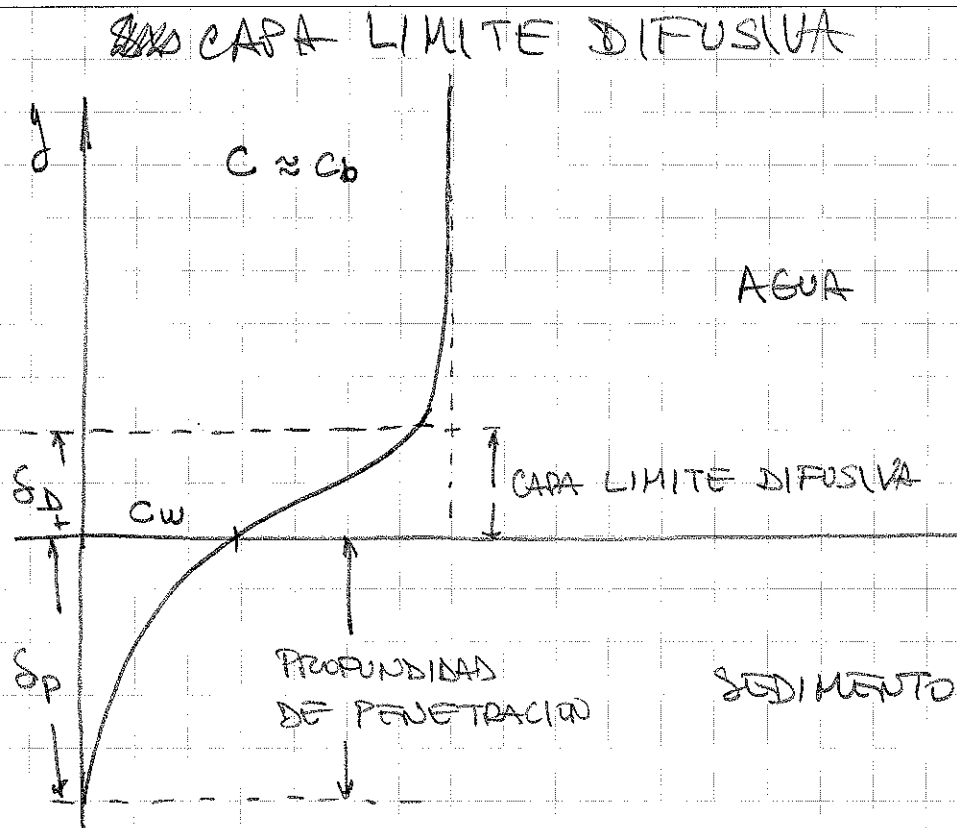 CAPA LIMITE DIFUSIVA
y
C ≈ Cb
AGUA
δD
CAPA LIMITE DIFUSIVA
Cw
δp
PROFUNDIDAD
DE PENETRACION
SEDIMENTO